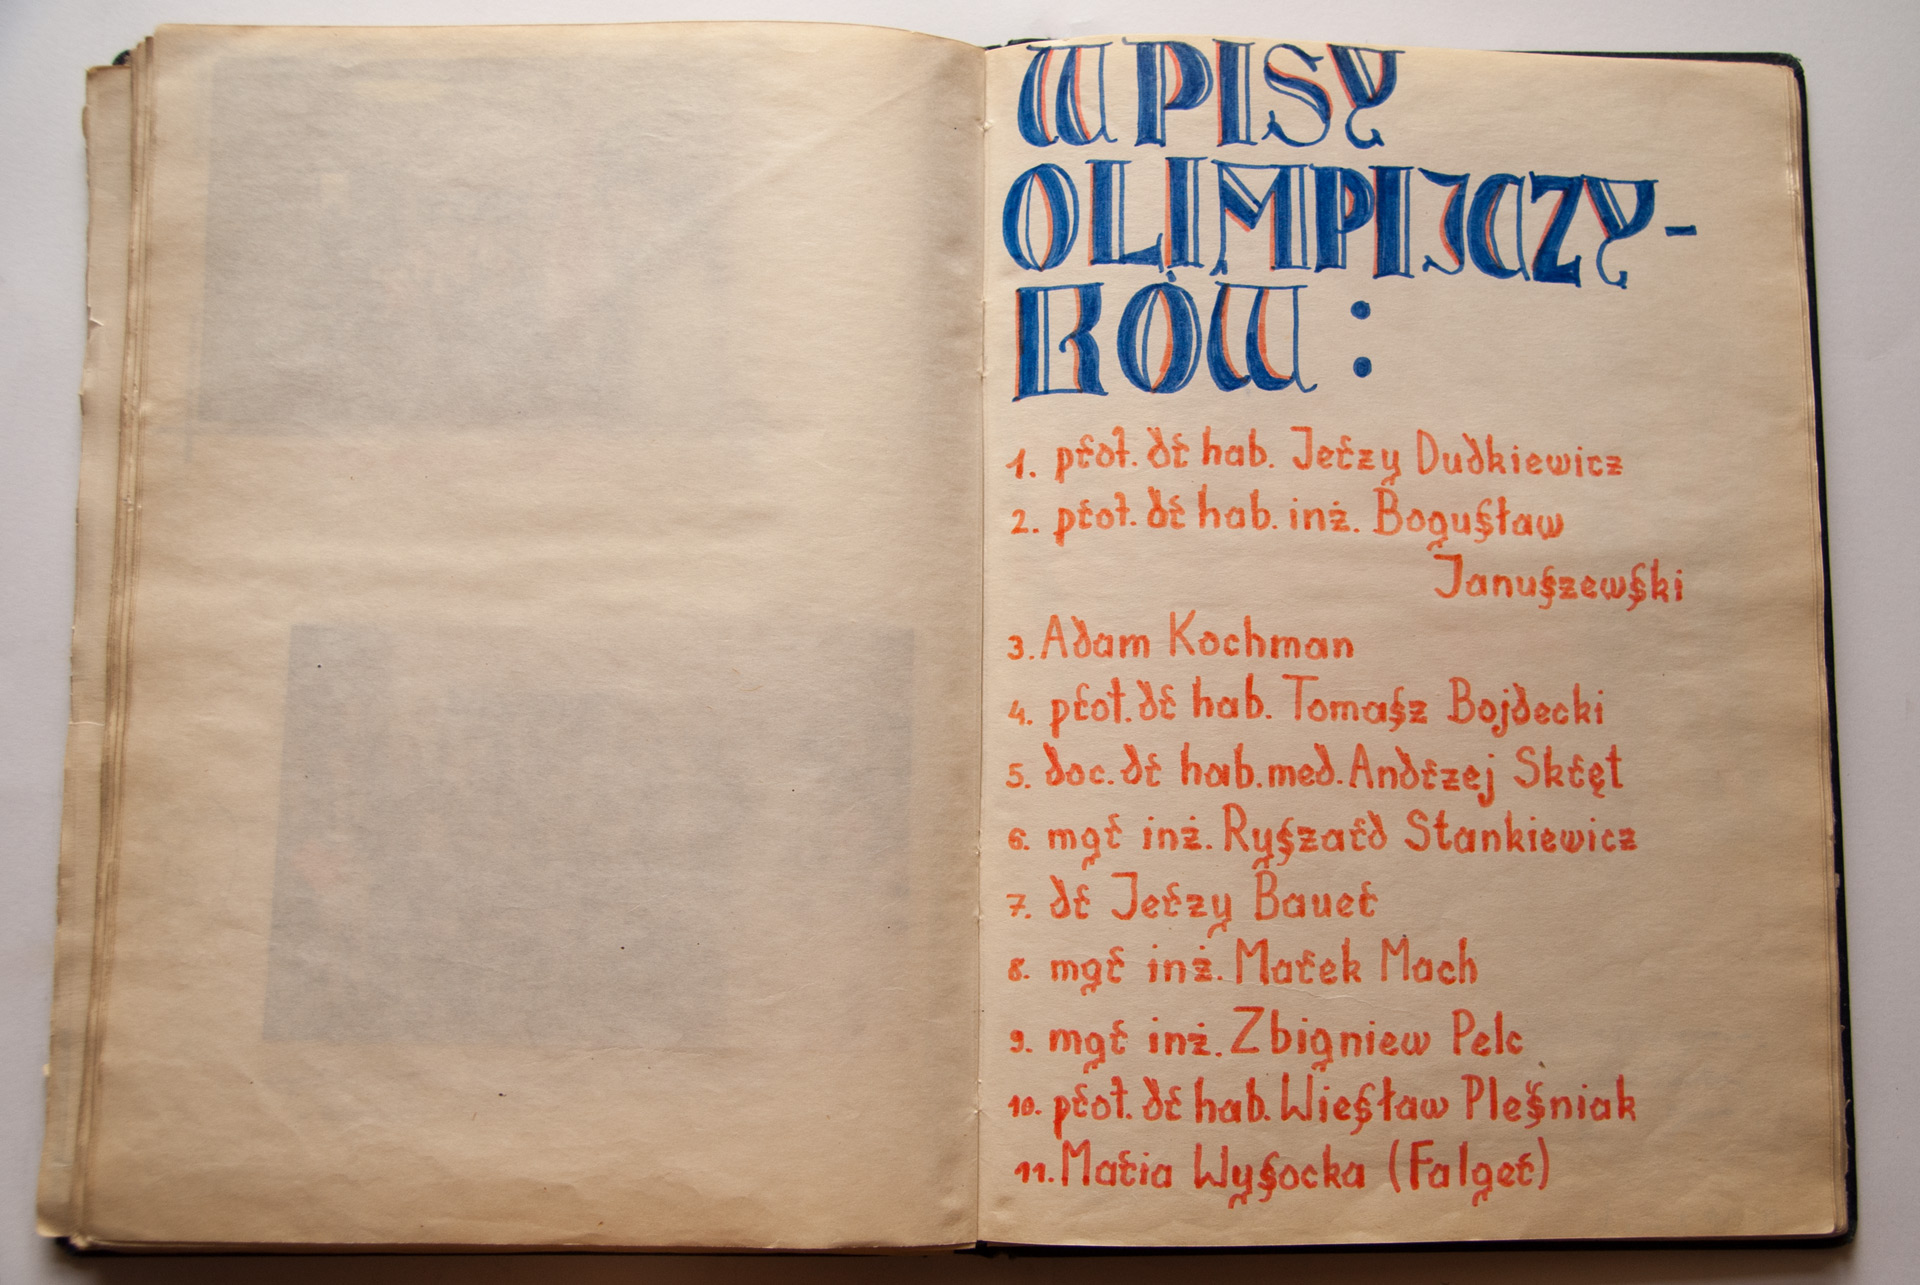 WPISY
OLIMPIJCZY-
KÓW :
1. prof. dr hab. Jerzy Dudkiewicz
2. prof. dr hab. inż. Bogusław
Januszewski
3. Adam Kochman
4. prof. dr hab. Tomasz Bojdecki
5. doc. dr hab. med. Andrzej Skręt
6. mgr inż. Ryszard Stankiewicz
7. dr Jerzy Bauer
8. mgr inż. Marek Mach
9. mgr inż. Zbigniew Pelc
10. prof. dr hab. Wiesław Pleśniak
11. Maria Wysocka (Falger)